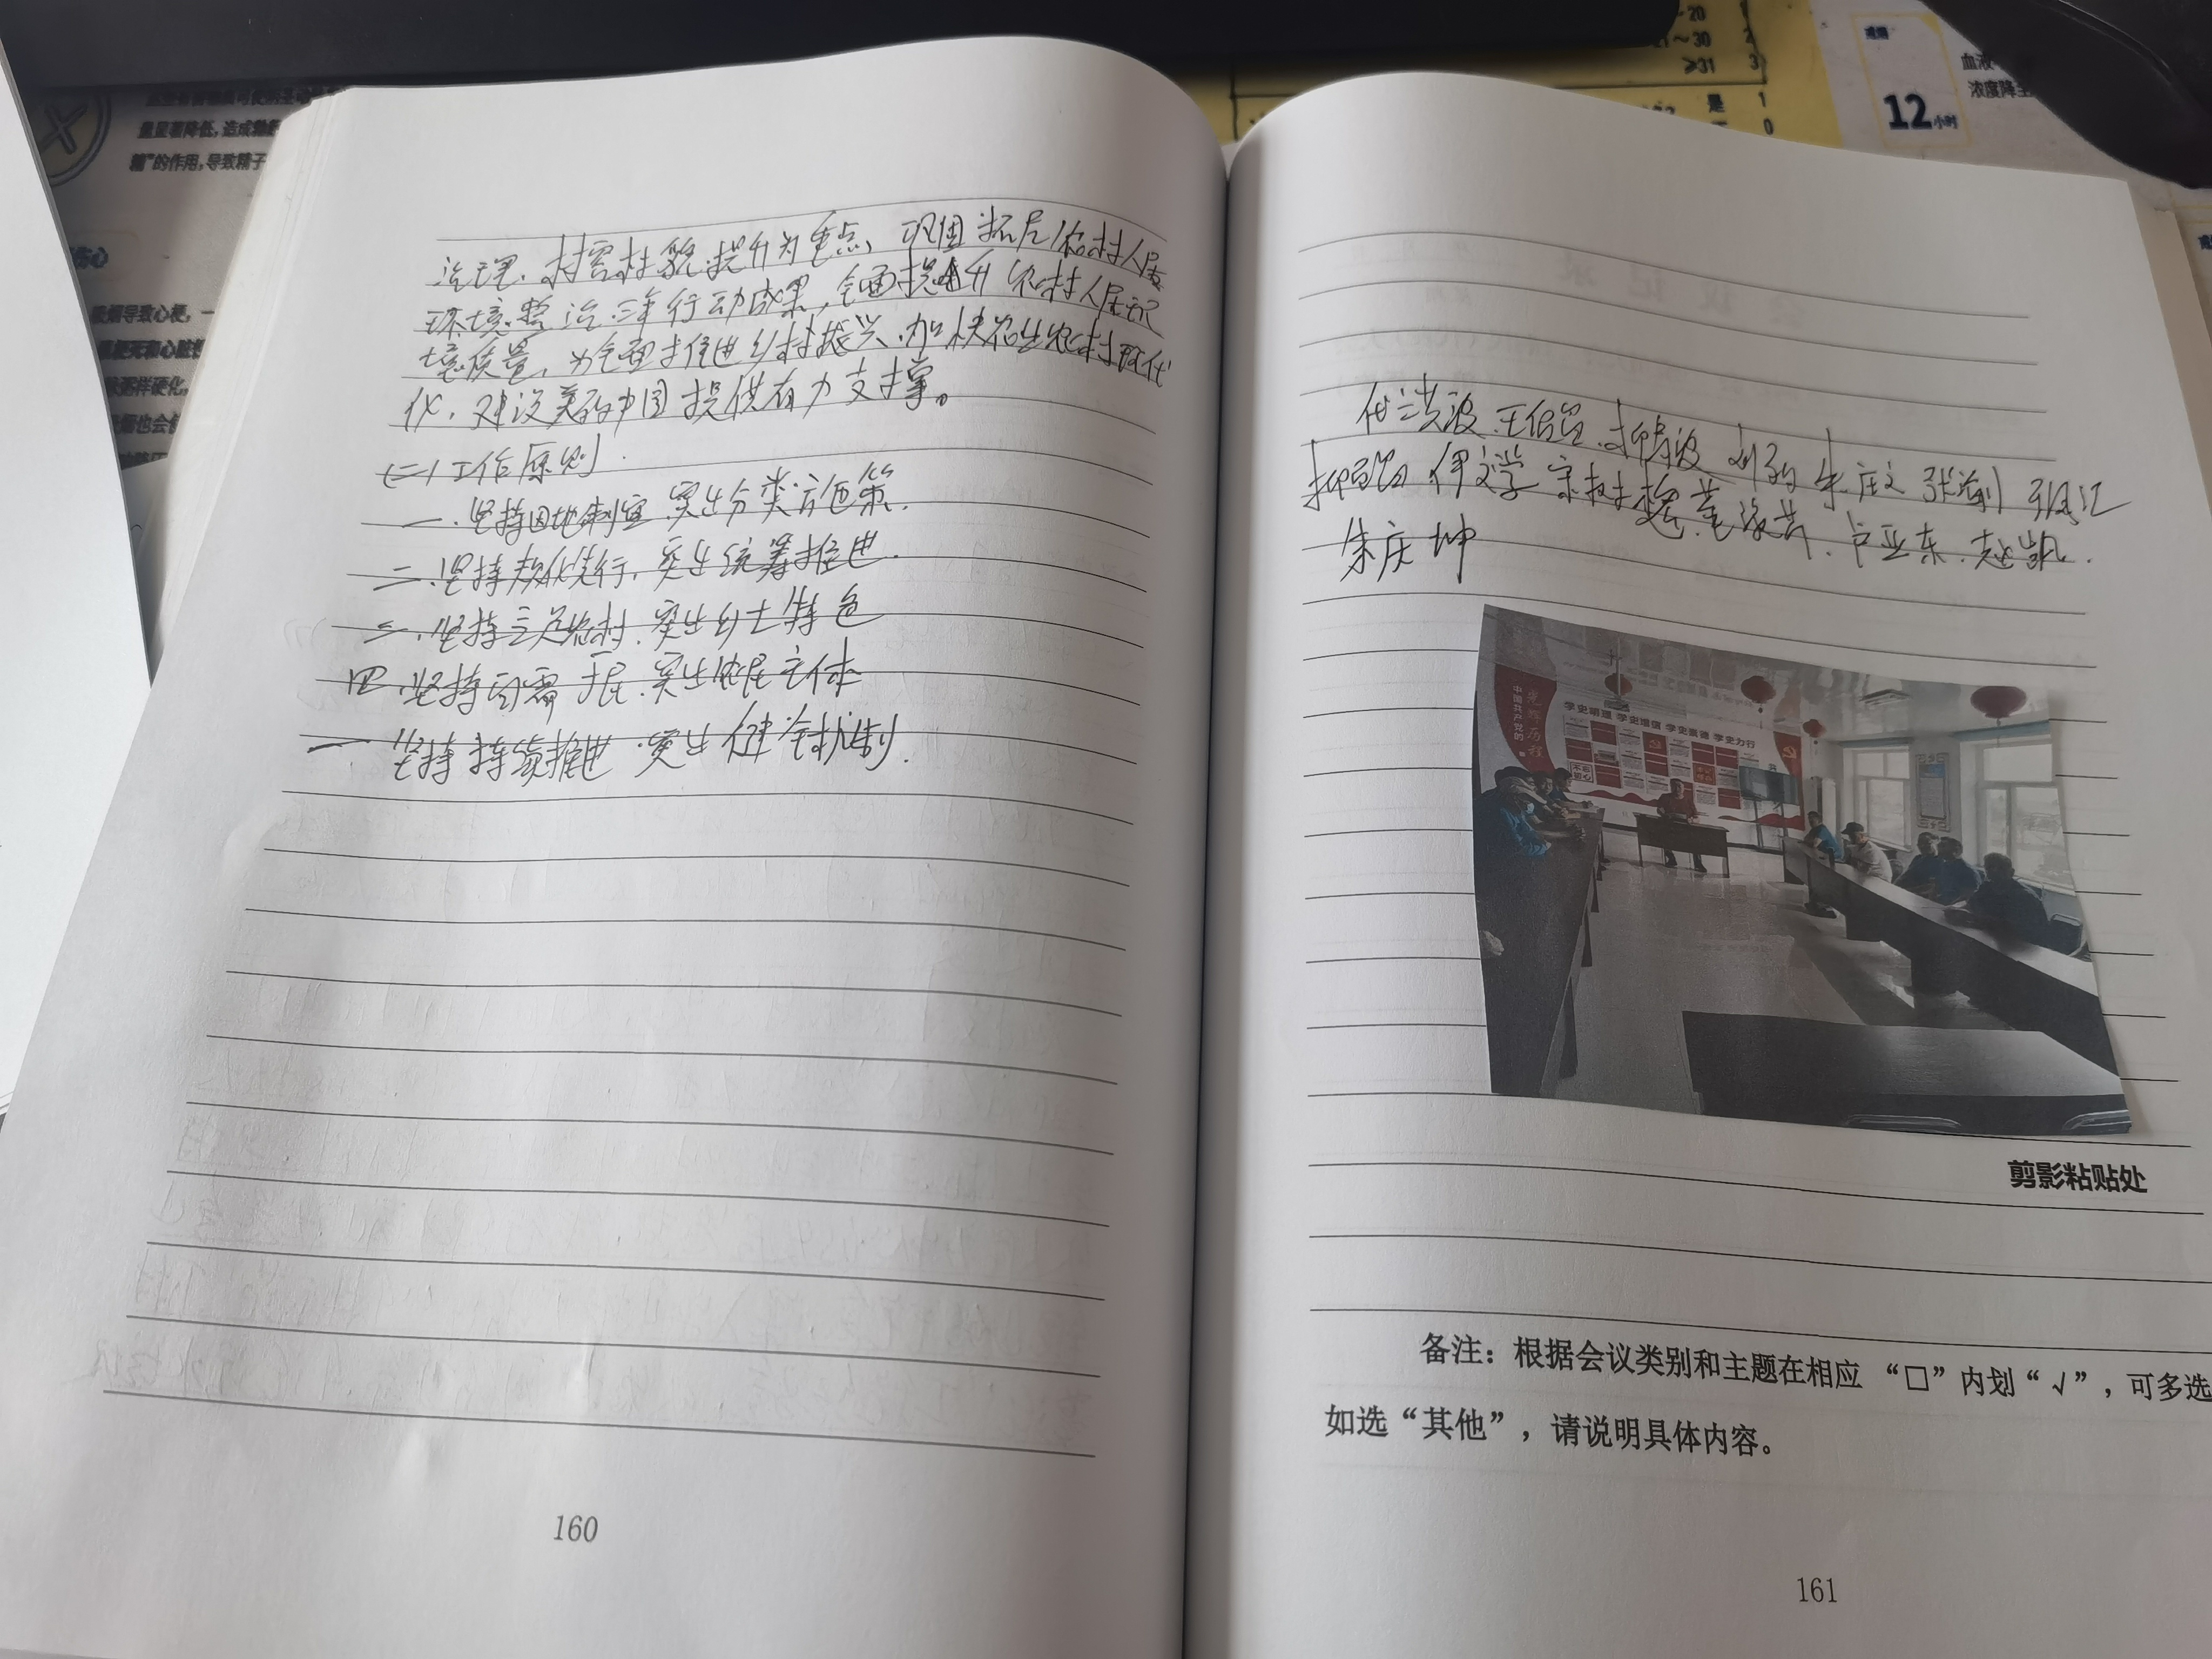 治理、村容村貌提升为重点、巩固拓展农村人居
环境整治三年行动成果,全面提升农村人居环
境质量,为全面推进乡村振兴、加快农业农村现代
化、建设美丽中国提供有力支撑。
(二)工作原则
一.坚持因地制宜、突出分类施策.
二.坚持规划先行,突出统筹推进.
三.坚持立足农村、突出乡土特色
四.坚持问需于民、突出农民主体
一 坚持持续推进·突出健全机制.
160
洪波
伊文学 宋树 卢亚东. 赵凯.
朱庆坤
中国共产党的
光辉历程
学史明理 学史增信 学史崇德 学史力行
剪影粘贴处
备注:根据会议类别和主题在相应“□”内划“√”,可多选
如选“其他”,请说明具体内容。
161
量显著降低,造成
精”的作用,导致精子
吸烟导致心梗,一
样硬化,
烟也会
~20 1
~30 2
≥31 3
是 1
0
12小时
血液
浓度降至